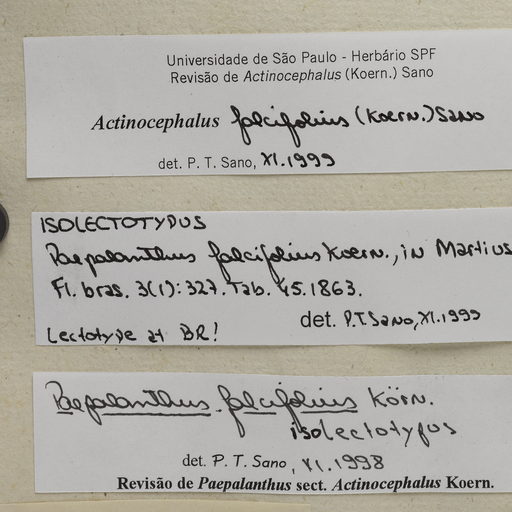 Universidade de São Paulo - Herbário SPF
Revisão de Actinocephalus (Koern.) Sano
Actinocephalus falcifolius (Koern.) Sano
det. P. T. Sano, XI.1999
ISOLECTOTYPUS
Paepalanthus falcifolius Koern., in Martius
Fl. bras. 3(1): 327. Tab. 45. 1863.
Lectotype at BR!
det. P.T. Sano, XI.1999
Paepalanthus falcifolius Körn.
isolectotypus
det. P. T. Sano, VI.1998
Revisão de Paepalanthus sect. Actinocephalus Koern.